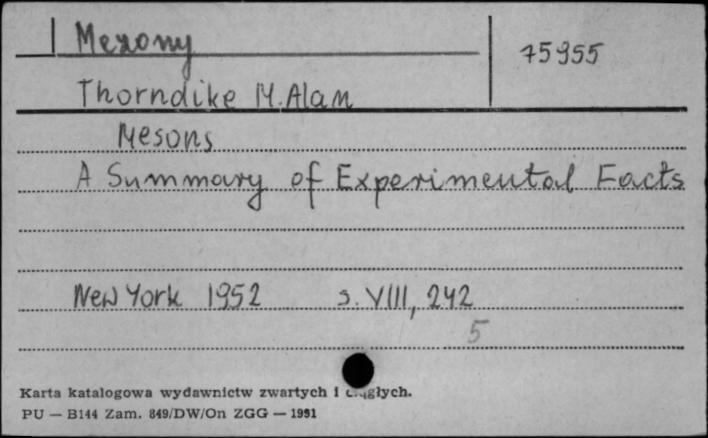 Mezony
75955
Thorndike M. Alan
Mesons
A Summary of Experimental Facts
New York 1952 s. VIII, 242
5
Karta katalogowa wydawnictw zwartych i ciągłych.
PU — B144 Zam. 849/DW/On ZGG — 1981